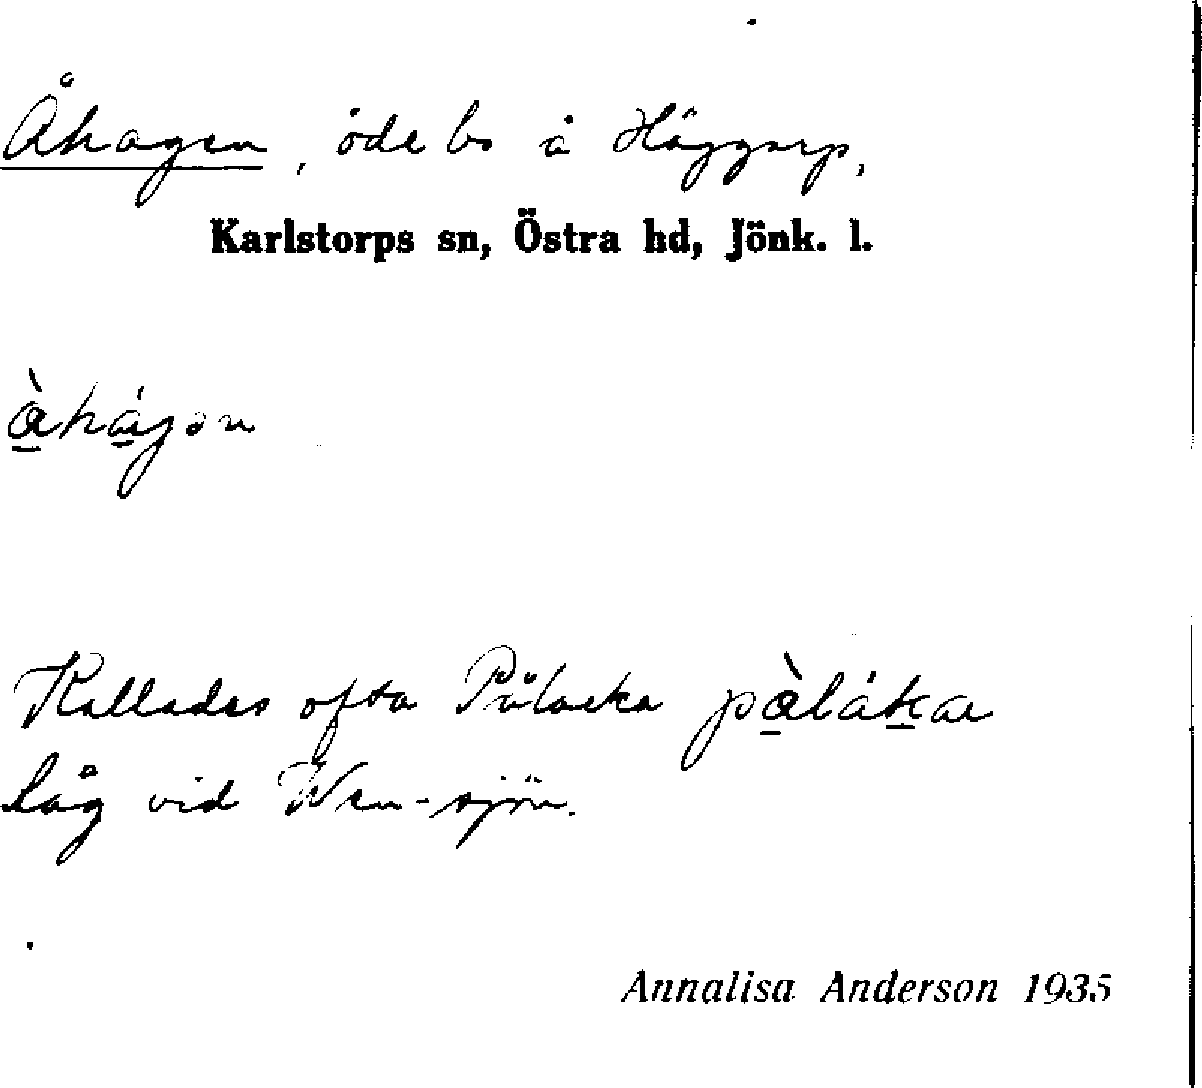 Åhagen, öde bs å Häggarp,
Karlstorps sn, Östra hd, Jönk. l.
Kallades ofta Pålacka
Låg vid Wen-sjön.
Annalisa Anderson 1935